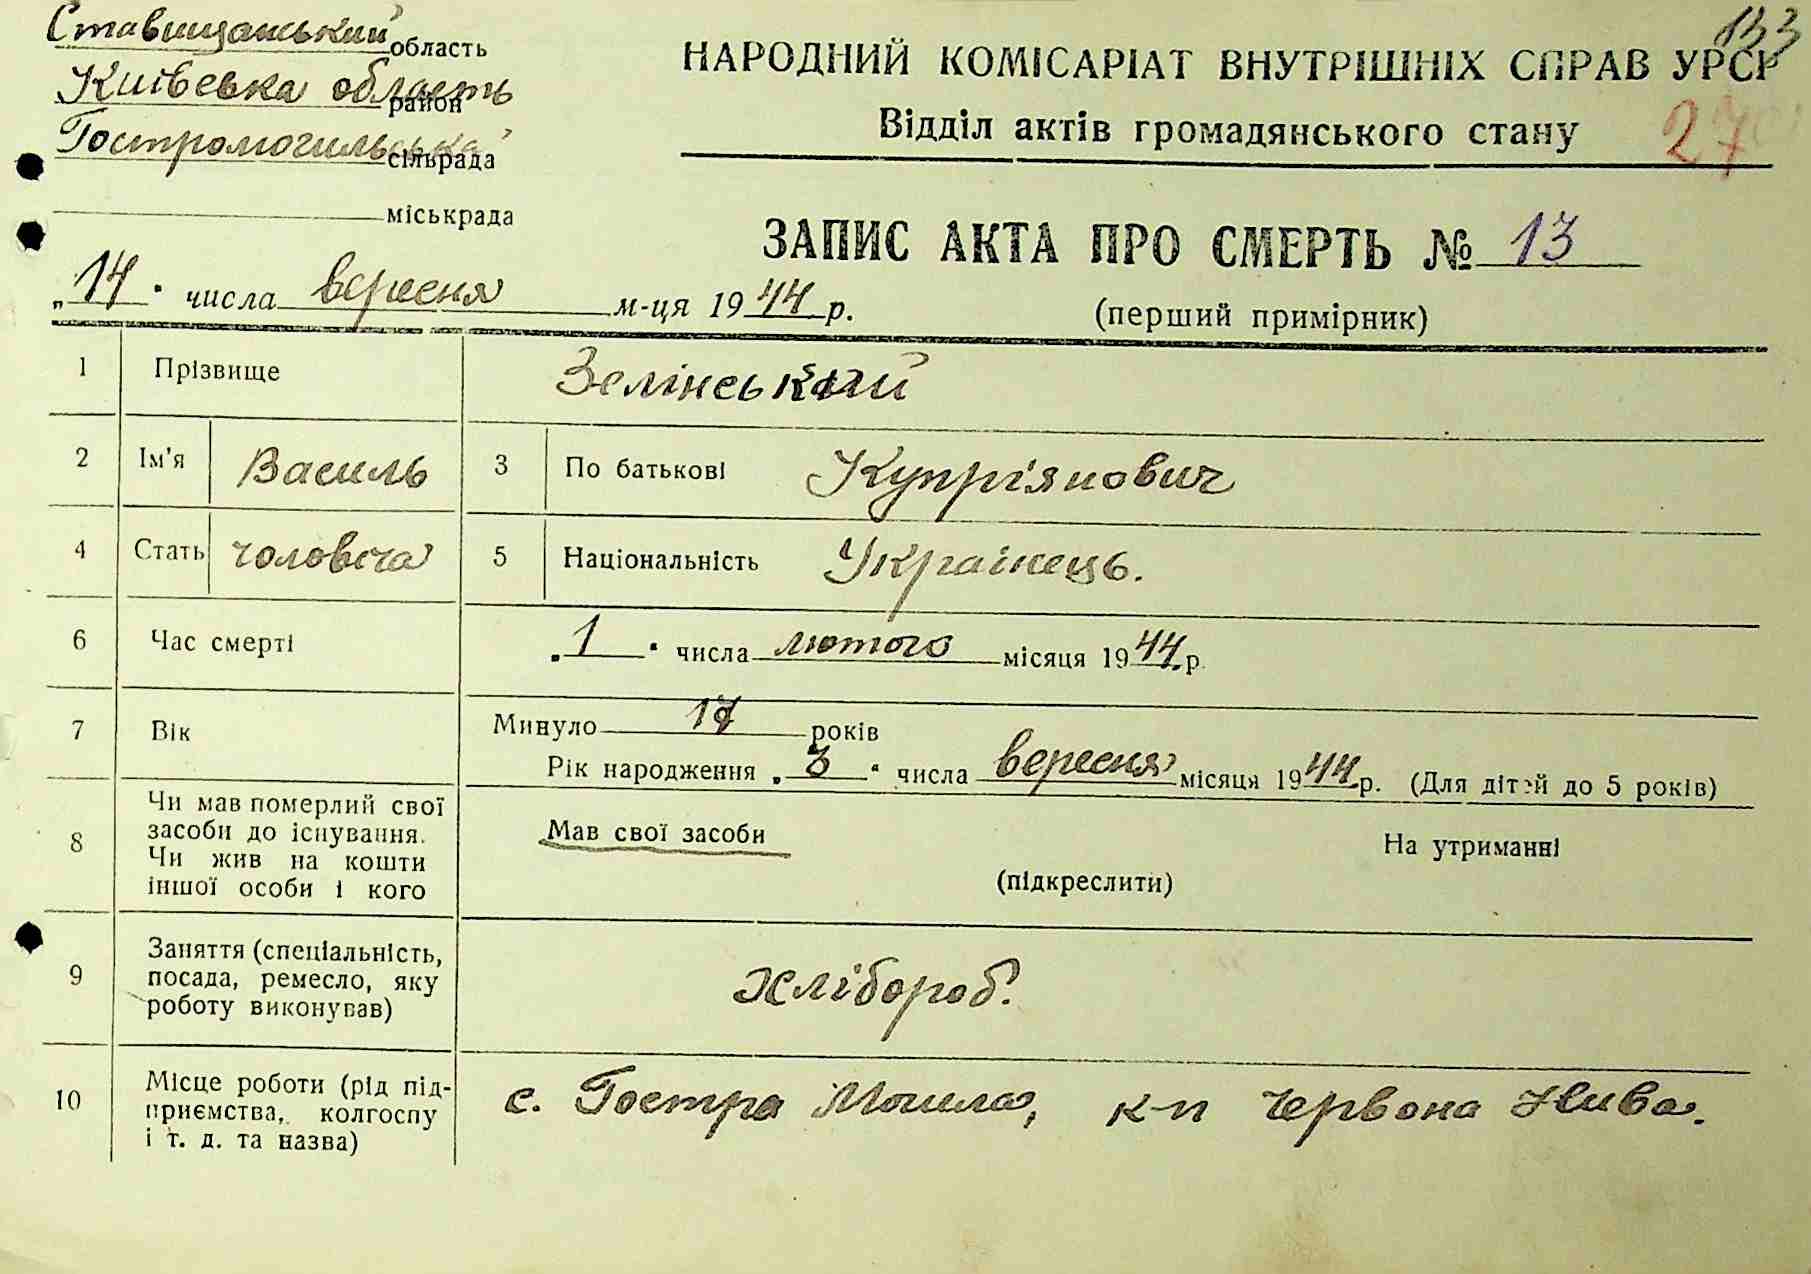 Ставищанський область
133
Київська область район
Гостромогильська сільрада
міськрада
НАРОДНИЙ КОМІСАРІАТ ВНУТРІШНІХ СПРАВ УРСР
Відділ актів громадянського стану
27
ЗАПИС АКТА ПРО СМЕРТЬ № 13
„14" числа вересня м-ця 1944 р.
(перший примірник)
1 Прізвище Зелінський
2 Ім'я Василь 3 По батькові Купріянович
4 Стать чоловіча 5 Національність Українець.
6 Час смерті „1" числа лютого місяця 1944 р.
7 Вік Минуло 17 років
Рік народження „3" числа вересня місяця 1944 р. (Для дітей до 5 років)
8 Чи мав померлий свої
засоби до існування.
Чи жив на кошти
іншої особи і кого
Мав свої засоби На утриманні
(підкреслити)
9 Заняття (спеціальність,
посада, ремесло, яку
роботу виконував)
Хлібороб.
10 Місце роботи (рід під-
приємства, колгоспу
і т. д. та назва)
с. Гостра Могила, к-п Червона Нива.